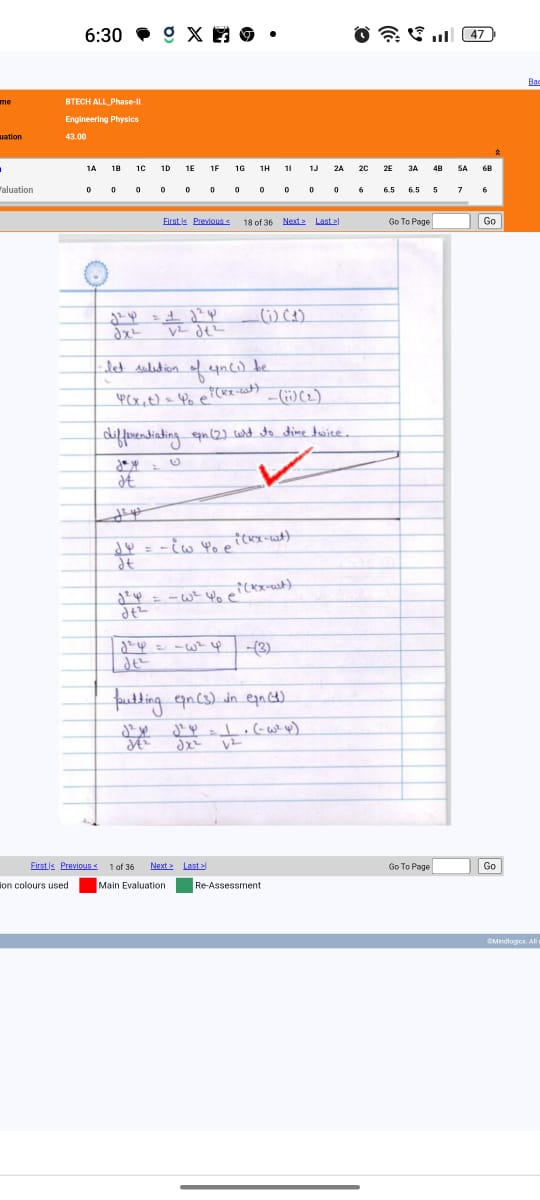 6:30
47
Bac
me
BTECH ALL_Phase-II
Engineering Physics
uation
43.00
1A 1B 1C 1D 1E 1F 1G 1H 1I 1J 2A 2C 2E 3A 4B 5A 6B
aluation 0 0 0 0 0 0 0 0 0 0 0 6 6.5 6.5 5 7 6
First |< Previous < 18 of 36 Next > Last >| Go To Page Go
∂²ψ/∂x² = 1/v² ∂²ψ/∂t² —(i) (1)
let solution of eqn(i) be
ψ(x,t) = ψ₀ e^i(kx-ωt) —(ii) (2)
differentiating eqn (2) wrt to time twice.
∂ψ/∂t = ω
∂²ψ
∂ψ/∂t = -iω ψ₀ e^i(kx-ωt)
∂²ψ/∂t² = -ω² ψ₀ e^i(kx-ωt)
∂²ψ/∂t² = -ω² ψ —(3)
putting eqn(3) in eqn(1)
∂²ψ/∂t² ∂²ψ/∂x² = 1/v² . (-ω²ψ)
First |< Previous < 1 of 36 Next > Last >| Go To Page Go
ion colours used Main Evaluation Re-Assessment
©Mindlogicx. All